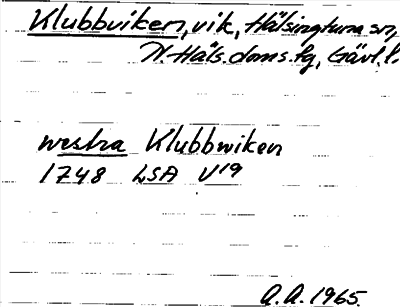 Klubbviken, vik, Hälsingtuna sn,
N. Häls. doms. fg, Gävl. l.
westra Klubbwiken
1748 LSA V19
A.A. 1965.